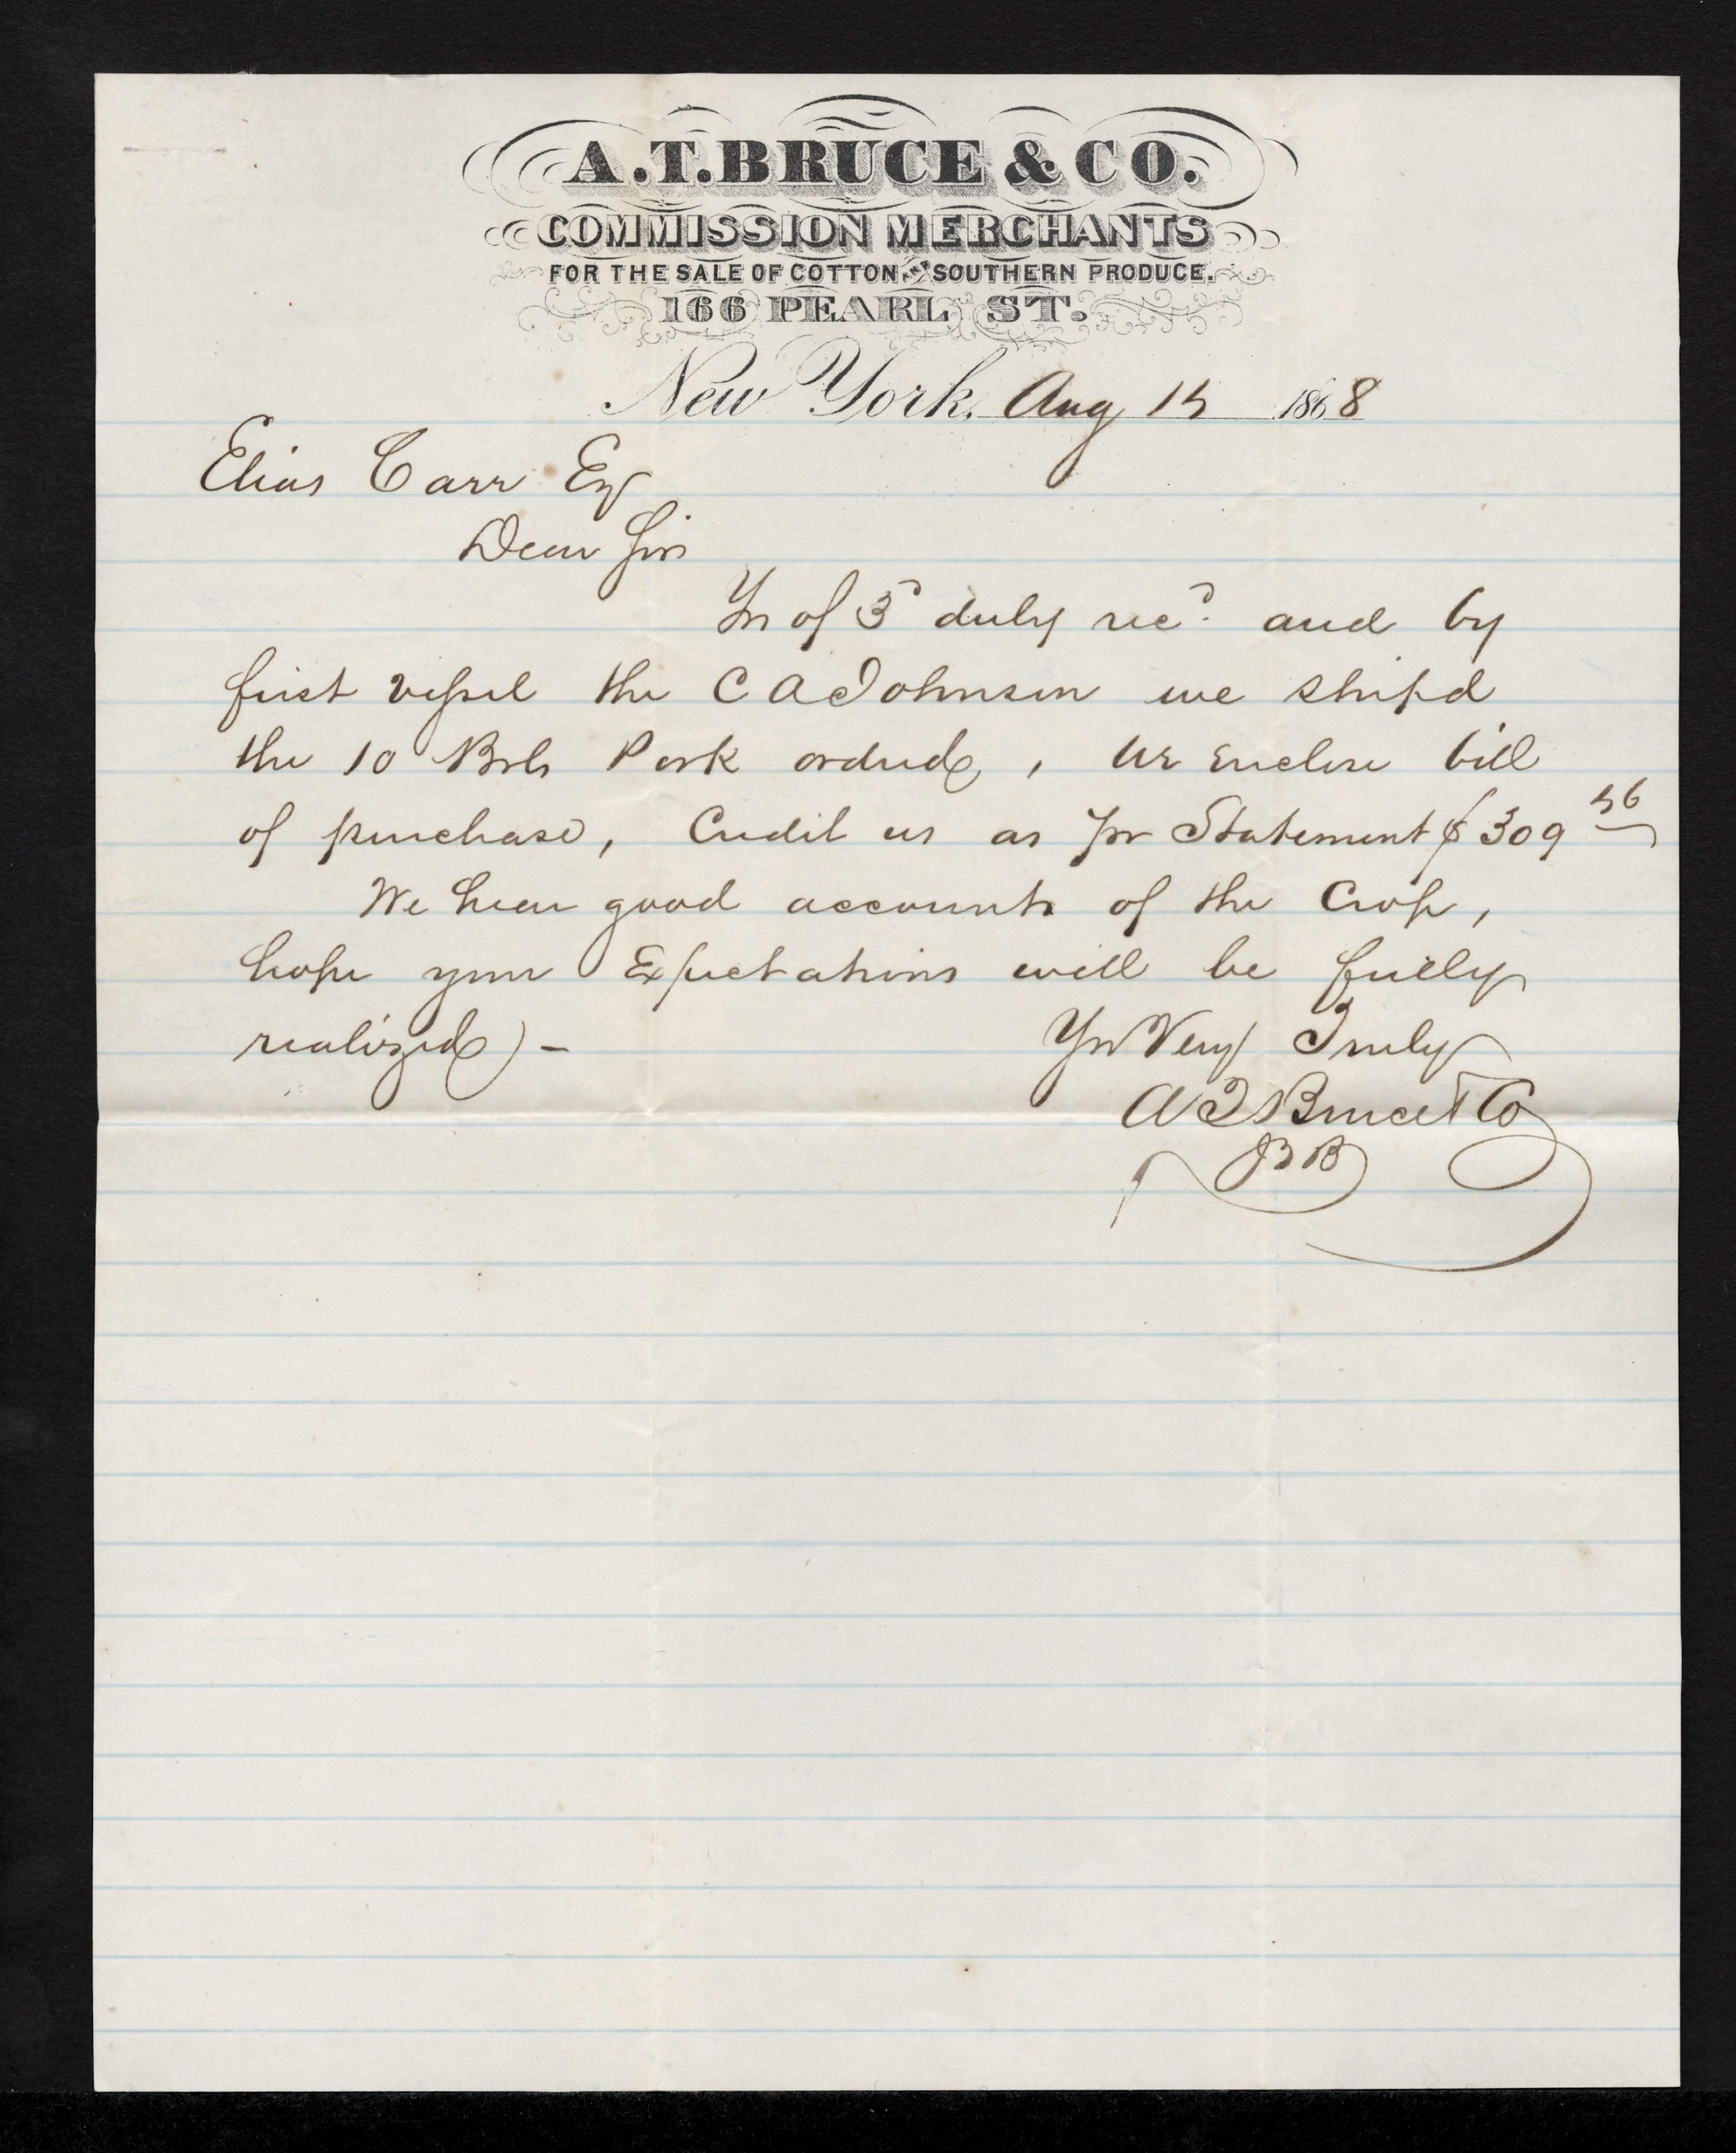 A.T. BRUCE & CO.
COMMISSION MERCHANTS
FOR THE SALE OF COTTON AND SOUTHERN PRODUCE.
166 PEARL ST.
New York, Aug 15 1868
Elias Carr Esq
Dear Sir
Yrs of 3d duly recd. and by
first vessel the C A Johnson we shipd
the 10 Brls Pork ordered, We Enclose bill
of purchase, Credit us as pr Statement $309 56
We hear good accounts of the Crop,
hope your Expectations will be fully
realized) -
Yrs Very Truly
A T Bruce & Co
BB